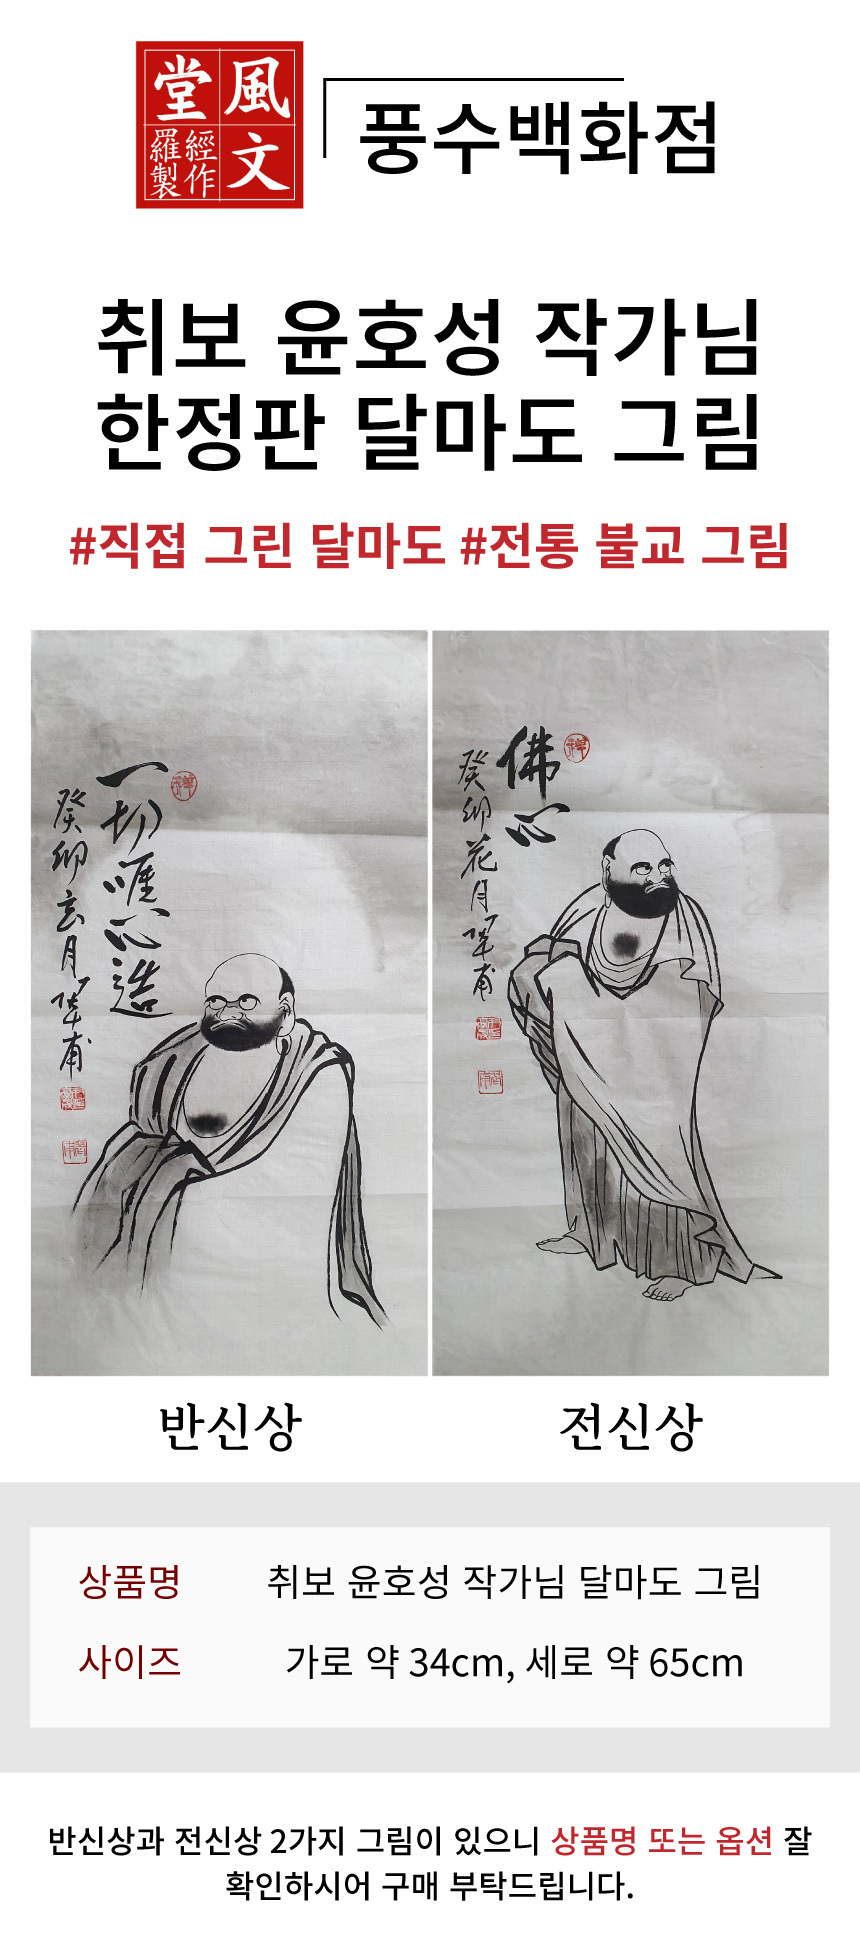 風文堂
經作羅製
풍수백화점
취보 윤호성 작가님
한정판 달마도 그림
#직접 그린 달마도 #전통 불교 그림
一切唯心造
癸卯玄月
佛心
癸卯花月
반신상
전신상
상품명 취보 윤호성 작가님 달마도 그림
사이즈 가로 약 34cm, 세로 약 65cm
반신상과 전신상 2가지 그림이 있으니 상품명 또는 옵션 잘
확인하시어 구매 부탁드립니다.